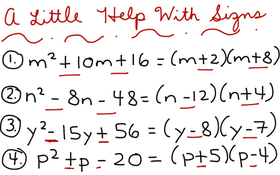 A Little Help With Signs
1. m² + 10m + 16 = (m + 2)(m + 8)
2. n² - 8n - 48 = (n - 12)(n + 4)
3. y² - 15y + 56 = (y - 8)(y - 7)
4. p² + p - 20 = (p + 5)(p - 4)